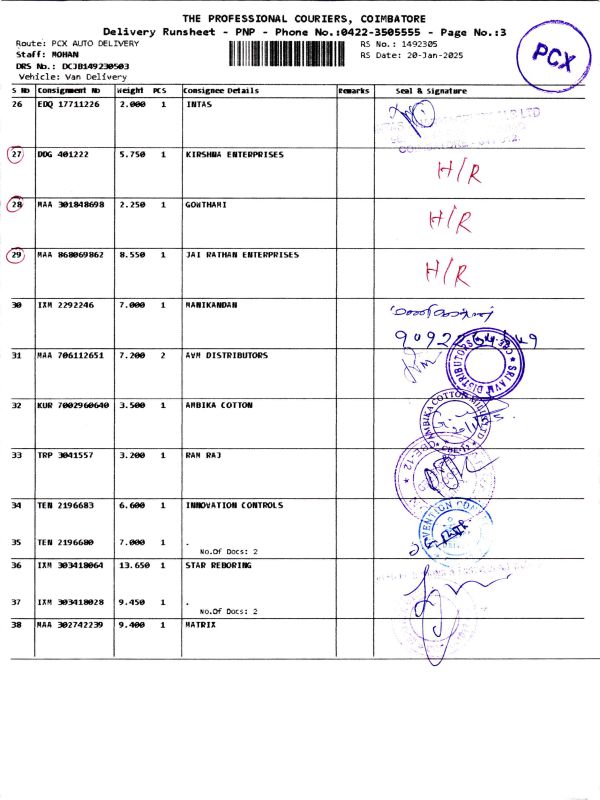 THE PROFESSIONAL COURIERS, COIMBATORE
Delivery Runsheet - PNP - Phone No.:0422-3505555 - Page No.:3
Route: PCX AUTO DELIVERY
RS No.: 1492305
Staff: MOHAN
RS Date: 20-Jan-2025
DRS No.: DCJB149230503
Vehicle: Van Delivery
PCX
S No Consignment No Weight PCS Consignee Details Remarks Seal & Signature
26 EDQ 17711226 2.000 1 INTAS
27 DDG 401222 5.750 1 KIRSHNA ENTERPRISES H/R
28 MAA 301848698 2.250 1 GOWTHAMI H/R
29 MAA 868069862 8.550 1 JAI RATHAN ENTERPRISES H/R
30 IXM 2292246 7.000 1 MANIKANDAN
31 MAA 706112651 7.200 2 AVM DISTRIBUTORS
SRI AVM DISTRIBUTORS
32 KUR 7002960640 3.500 1 AMBIKA COTTON
AMBIKA COTTON MILLS LTD
33 TRP 3041557 3.200 1 RAM RAJ
CBE-12
34 TEN 2196683 6.600 1 INNOVATION CONTROLS
35 TEN 2196680 7.000 1 .
No.Of Docs: 2
36 IXM 303418064 13.650 1 STAR REBORING
37 IXM 303418028 9.450 1 .
No.Of Docs: 2
38 MAA 302742239 9.400 1 MATRIX